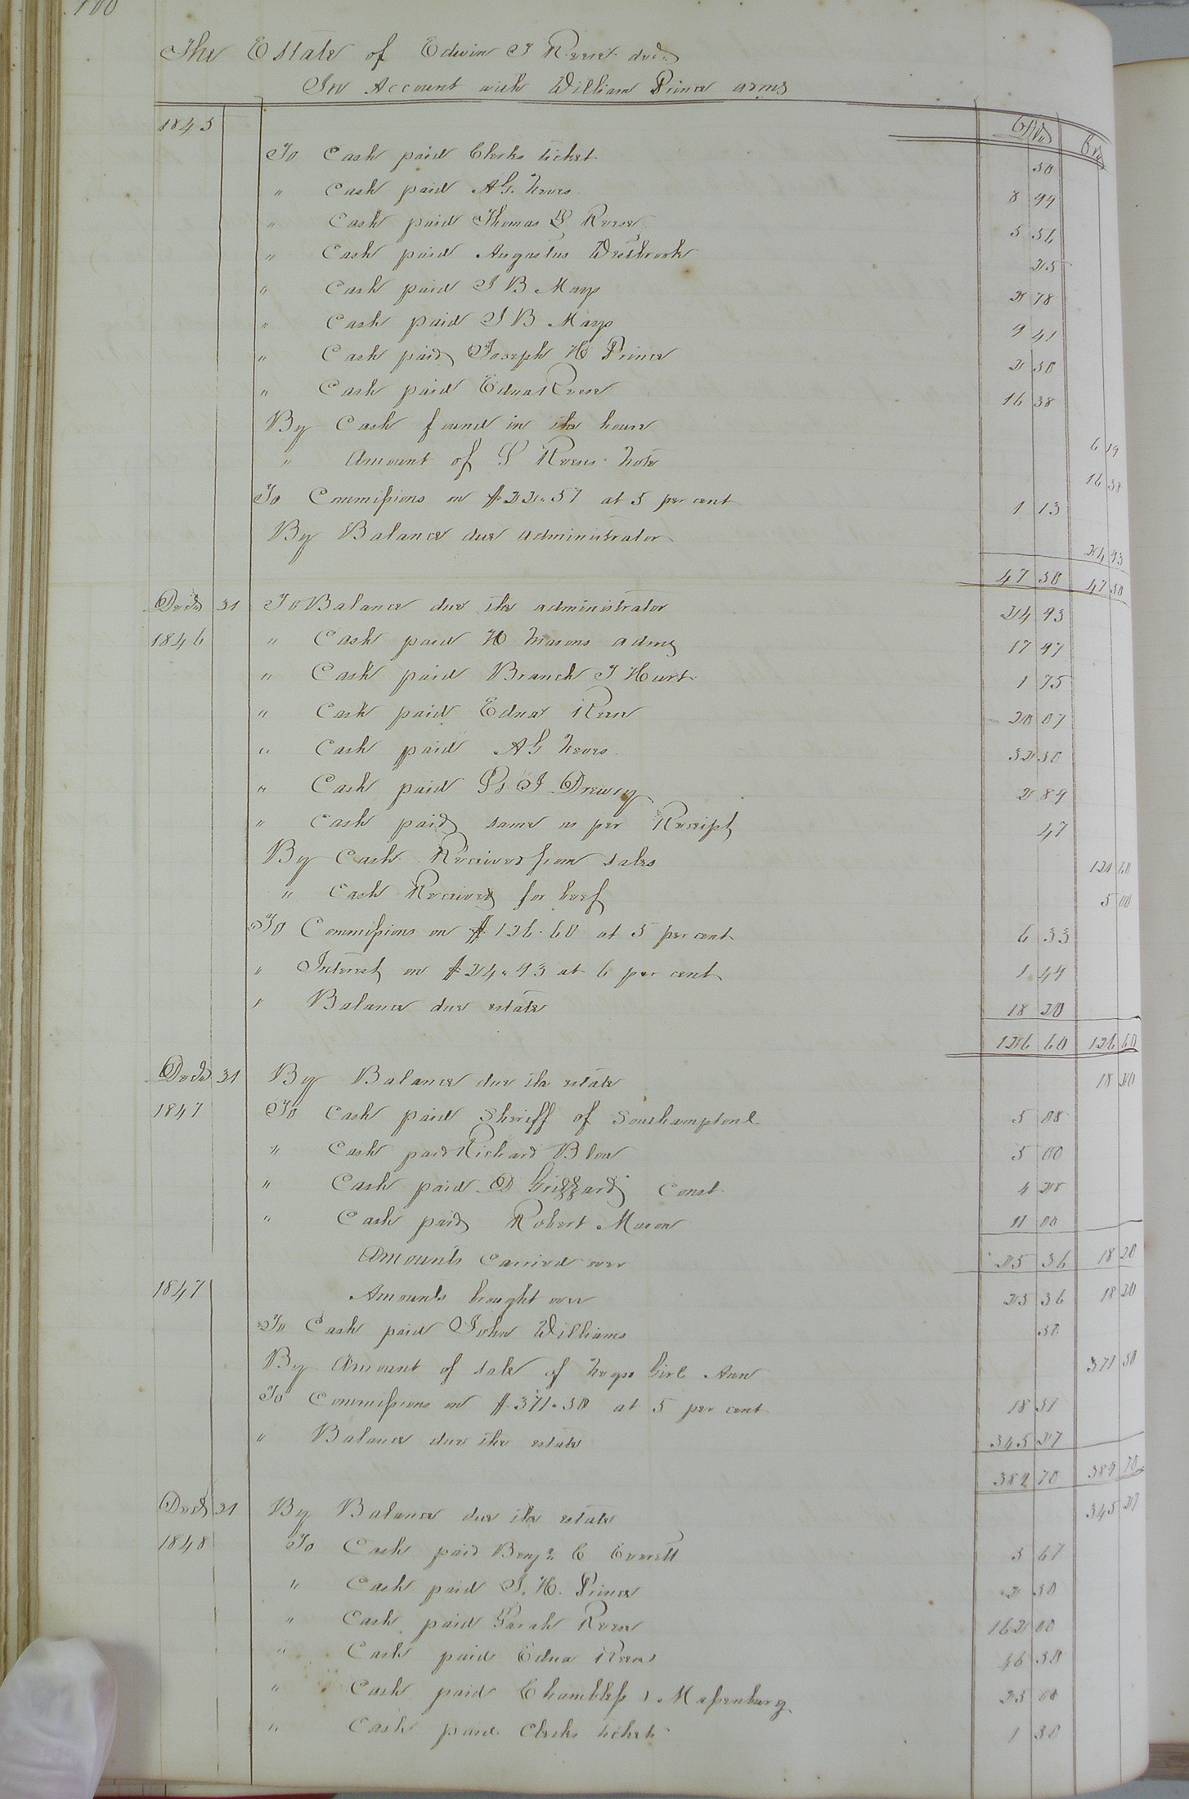 100
The Estate of Edwin T Reese decd
In Account with William Prince adms
1845 Drs Crs
To Cash paid Clerks ticket 50
" Cash paid A G 8 44
" Cash paid Thomas Reese 5 56
" Cash paid Augustus Westbrook 25
" Cash paid J B Mays 2 78
" Cash paid J B Mays 9 41
" Cash paid Joseph H Prince 2 50
" Cash paid Edna Reese 16 38
By Cash found in the house 6 19
" Amount of S Reeses Note 16 38
To Commissions on $22.57 at 5 per cent 1 13
By Balance due administrator 24 93
47 50 47 50
Decr 31 To Balance due the administrator 24 93
1846 " Cash paid H Masons adms 17 97
" Cash paid Branch T Hurt 1 75
" Cash paid Edna Reese 20 07
" Cash paid A G 32 50
" Cash paid S J Drewry 2 89
" Cash paid same as per Receipt 47
By Cash Received from sales 121 60
" Cash Received for beef 5 00
To Commissions on $126.60 at 5 per cent 6 33
" Interest on $24.93 at 6 per cent 1 49
" Balance due estate 18 20
126 60 126 60
Decr 31 By Balance due the estate 18 20
1847 To Cash paid Sheriff of Southampton 5 08
" Cash paid Richard Blow 5 00
" Cash paid D Grizzard Const 4 28
" Cash paid Robert Mason 11 00
Amounts Carried over 25 36 18 20
1847 Amounts brought over 25 36 18 20
To Cash paid John Williams 50
By Amount of sale of Negro Girl Ann 371 50
To Commissions on $371.50 at 5 per cent 18 57
" Balance due the estate 345 27
389 70 389 70
Decr 31 By Balance due the estate 345 27
1848 To Cash paid Benjn C Everett 3 67
" Cash paid J. H. Prince 2 50
" Cash paid Sarah Reese 162 00
" Cash paid Edna Reese 46 50
" Cash paid Chambliss & Massenburg 25 00
" Cash paid Clerks tickets 1 30